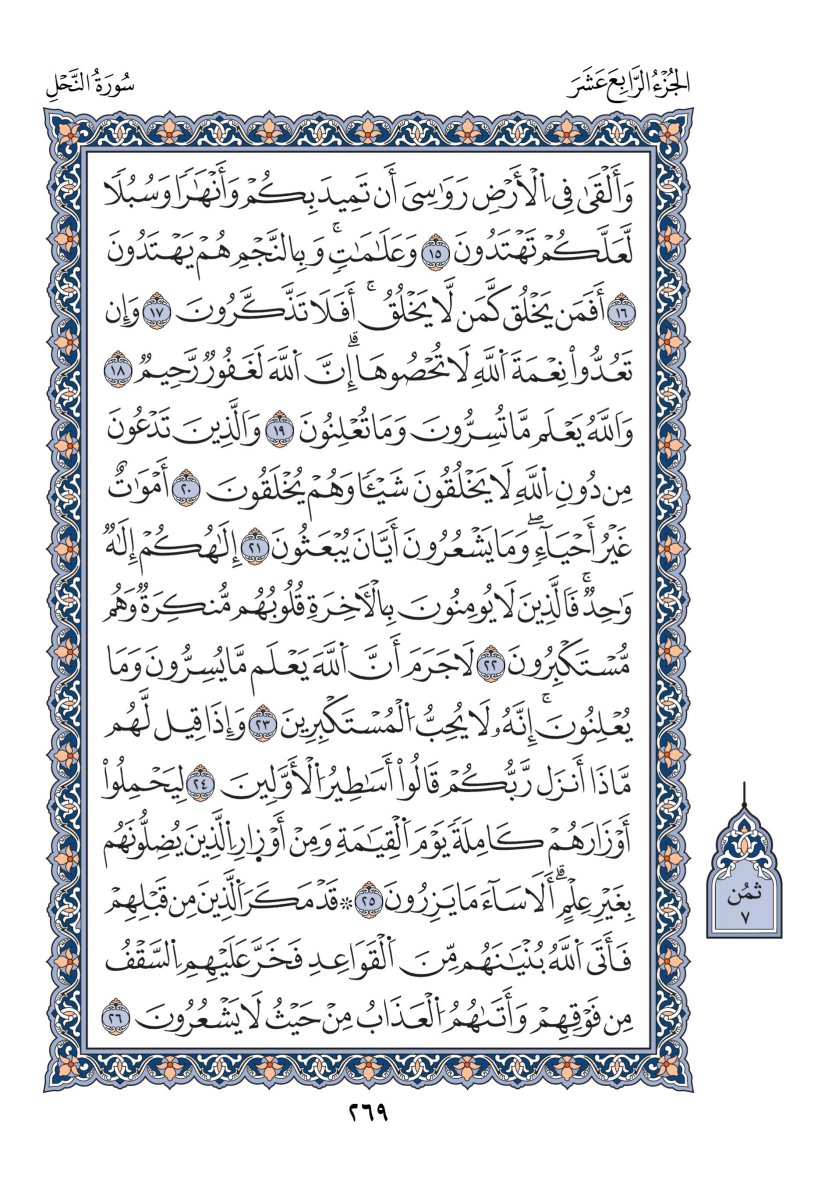 الجُزْءُ الرَّابِعَ عَشَرَ
سُورَةُ النَّحْلِ
وَأَلْقَىٰ فِي اِ۬لْأَرْضِ رَوَٰسِيَ أَن تَمِيدَ بِكُمْ وَأَنْهَٰرٗا وَسُبُلٗا
لَّعَلَّكُمْ تَهْتَدُونَ ١٥ وَعَلَٰمَٰتٖۚ وَبِالنَّجْمِ هُمْ يَهْتَدُونَ
١٦ أَفَمَن يَخْلُق كَّمَن لَّا يَخْلُقُۚ أَفَلَا تَذَّكَّرُونَ ١٧ وَإِن
تَعُدُّواْ نِعْمَةَ اَ۬للَّهِ لَا تُحْصُوهَاۗ إِنَّ اَ۬للَّهَ لَغَفُورٞ رَّحِيمٞ ١٨
وَاللَّهُ يَعْلَم مَّا تُسِرُّونَ وَمَا تُعْلِنُونَ ١٩ وَالَّذِينَ تَدْعُونَ
مِن دُونِ اِ۬للَّهِ لَا يَخْلُقُونَ شَيْـٔٗا وَهُمْ يُخْلَقُونَ ٢٠ أَمْوَٰتٌ
غَيْرُ أَحْيَآءٖۖ وَمَا يَشْعُرُونَ أَيَّانَ يُبْعَثُونَ ٢١ إِلَٰهُكُمْ إِلَٰهٞ
وَٰحِدٞۚ فَالَّذِينَ لَا يُومِنُونَ بِالْأٓخِرَةِ قُلُوبُهُم مُّنكِرَةٞ وَهُم
مُّسْتَكْبِرُونَ ٢٢ لَا جَرَمَ أَنَّ اَ۬للَّهَ يَعْلَم مَّا يُسِرُّونَ وَمَا
يُعْلِنُونَۚ إِنَّهُۥ لَا يُحِبُّ اُ۬لْمُسْتَكْبِرِينَ ٢٣ وَإِذَا قِيل لَّهُم
مَّاذَا أَنزَل رَّبُّكُمْ قَالُواْ أَسَٰطِيرُ اُ۬لْأَوَّلِينَ ٢٤ لِيَحْمِلُواْ
أَوْزَارَهُمْ كَامِلَةٗ يَوْمَ اَ۬لْقِيَٰمَةِ وَمِنْ أَوْزٜارِ اِ۬لَّذِينَ يُضِلُّونَهُم
بِغَيْرِ عِلْمٍۗ أَلَا سَآءَ مَا يَزِرُونَ ٢٥ ۞ قَدْ مَكَرَ اَ۬لَّذِينَ مِن قَبْلِهِمْ
فَأَتَى اَ۬للَّهُ بُنْيَٰنَهُم مِّنَ اَ۬لْقَوَاعِدِ فَخَرَّ عَلَيْهِمِ اِ۬لسَّقْفُ
مِن فَوْقِهِمْ وَأَتَىٰهُمُ اُ۬لْعَذَابُ مِنْ حَيْثُ لَا يَشْعُرُونَ ٢٦
ثمُن
٧
٢٦٩